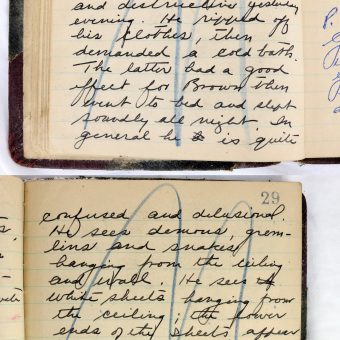 and destructive yesterday
evening. He ripped off
his clothes, then
demanded a cold bath.
The latter had a good
effect for Brown then
went to bed and slept
soundly all night. In
general he is quite
29
confused and delusional.
He sees demons, grem-
lins and snakes
hanging from the ceiling
and wall. He sees
white sheets hanging from
the ceiling; the lower
ends of the sheets appear